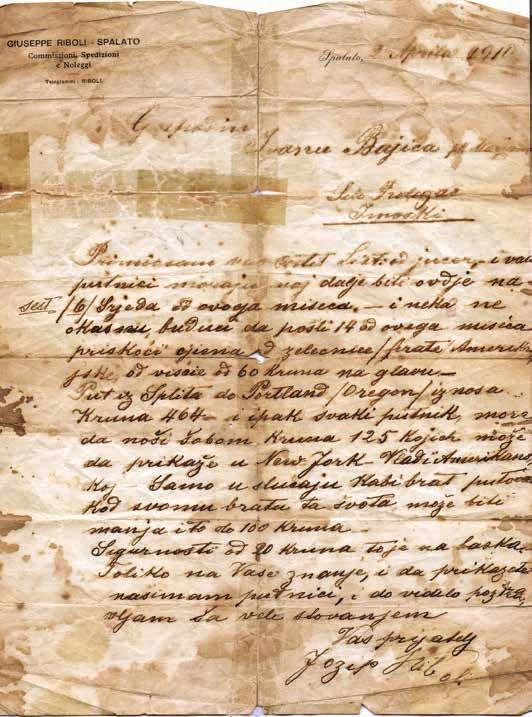 GIUSEPPE RIBOLI - SPALATO
Commissioni, Spedizioni
e Noleggi
Telegrammi: RIBOLI.
Spalato, 2 Aprila 191
Gospodin
Ivanu Bajica
Selo Prolozac
Imoski
Primio sam vas list od jucer, i vasi
putnici moraju najdalje biti ovdje na
sest /6/ Srjeda ovoga miseca, — i neka ne
okasnu, buduci da posli 14 od ovoga misica
priskoci cjena od zelecnice /prate/ Amerika
jske od viscie od 60 kruna na glavu —
Put iz Splita do Portland /Oregon/ iznosa
Kruna 464 - i ipak svaki putnik, more
da nosi sobom Kruna 125 kojih može
da prikaže u New Jork Vladi Amerikans
koj - Samo u slucaju kabi brat putova
kod svomu bratu ta svota može biti
manja i to do 100 kruna —
Sigurnosti od 20 kruna to je na
Toliko na Vase znanje, i da prikazete
nasimam putnici, i do vidalo pozdra
vljam sa vele stovanjem
Vas prijatelj
Jozip Riboli